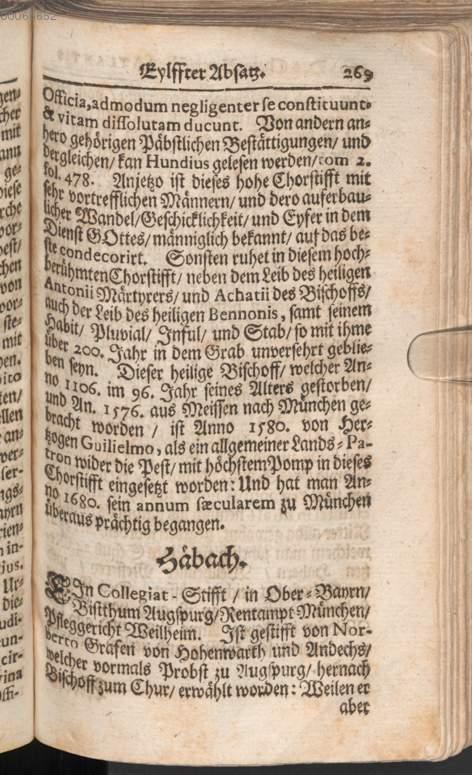 Eylffter Absatz. 269
Officia, admodum negligenter se constituunt
& vitam dissolutam ducunt. Von andern an-
hero gehörigen Päbstlichen Bestättigungen/ und
dergleichen/ kan Hundius gelesen werden/ tom 2.
fol. 478. Anjetzo ist dieses hohe Chorstifft mit
sehr vortrefflichen Männern/ und dero auferbau-
licher Wandel/ Geschicklichkeit/ und Eyfer in dem
Dienst GOttes/ männiglich bekannt/ auf das be-
ste condecorirt. Sonsten ruhet in diesem hoch-
berühmten Chorstifft/ neben dem Leib des heiligen
Antonii Märtyrers/ und Achatii des Bischoffs/
auch der Leib des heiligen Bennonis, samt seinem
Habit/ Pluvial/ Inful/ und Stab/ so mit ihme
über 200. Jahr in dem Grab unversehrt geblie-
ben seyn. Dieser heilige Bischoff/ welcher An-
no 1106. im 96. Jahr seines Alters gestorben/
und An. 1576. aus Meissen nach München ge-
bracht worden / ist Anno 1580. von Her-
tzogen Guilielmo, als ein allgemeiner Lands-Pa-
tron wider die Pest/ mit höchstem Pomp in dieses
Chorstifft eingesetzt worden: Und hat man An-
no 1680. sein annum sæcularem zu München
überaus prächtig begangen.
Häbach.
EIn Collegiat-Stifft / in Ober-Bayrn/
Bistthum Augspurg/ Rentampt München/
Pfleggericht Weilheim. Ist gestifft von Nor-
berto Grafen von Hohenwarth und Andechs/
welcher vormals Probst zu Augspurg/ hernach
Bischoff zum Chur/ erwählt worden: Weilen er
aber